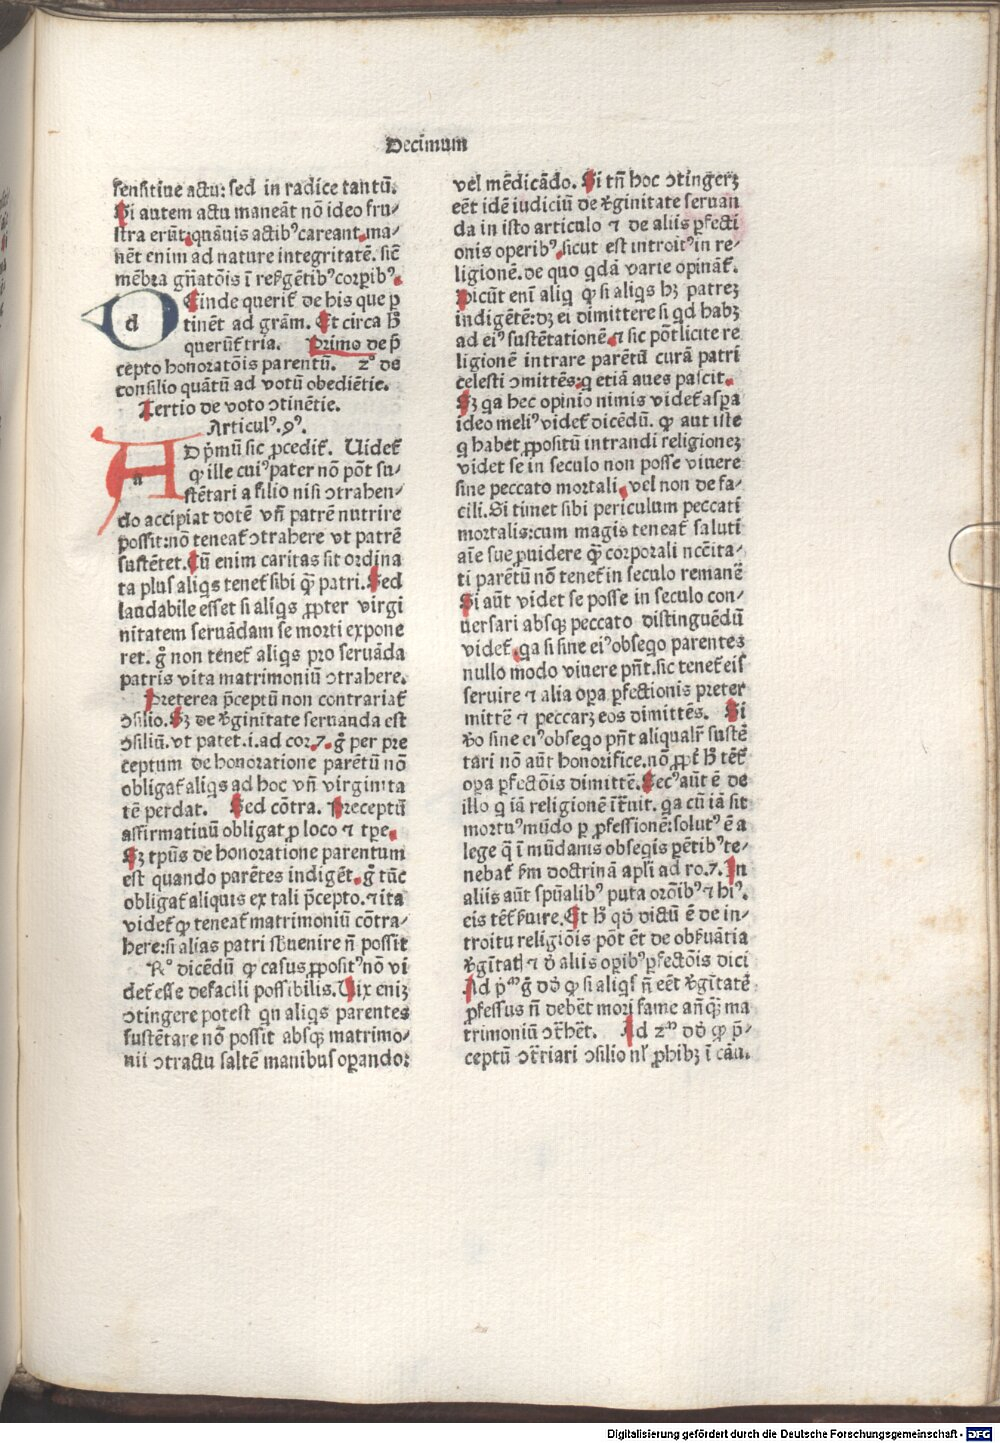 Decīmum
sensitiue actu: sed in radice tantū.
Si autem actu maneāt nō ideo fru/
stra erūt: quāuis actibꝰ careant. ma/
nēt enim ad nature integritatē. sic̄
mēbra gn̄atōis ī resꝛgētibꝰ corꝑibꝰ.
d Einde querit̄ de his que ꝑ
tinēt ad grām. Et circa ħ
querūt̄ tria. Primo de p̄
cepto honoratōis parentū. 2º de
consilio quātū ad votū obediētie.
Tertio de voto ↄtinētie.
Articulꝰ .9ꝰ.
a D pͥmū sic ꝓcedit̄. Uidet̄
ꝙ ille cuiꝰ pater nō pōt su/
stētari a filio nisi ↄtrahen/
do accipiat dotē vn̄ patrē nutrire
possit: nō teneat̄ ↄtrahere vt patrē
sustētet. Cū enim caritas sit ordina
ta plus aliqs tenet̄ sibi q̄ꝫ patri. Sed
laudabile esset si aliqs ꝓpter virgi
nitatem seruādam se morti expone
ret. gͦ non tenet̄ aliqs pro seruāda
patris vita matrimoniū ↄtrahere.
Preterea p̄ceptū non contrariat̄
ↄsilio. Sꝫ de ꝟginitate seruanda est
ↄsiliū. vt patet .i. ad cor .7. gͦ per pre
ceptum de honoratione parētū nō
obligat̄ aliqs ad hoc vn̄ virginita
tē perdat. Sed cōtra. Preceptū
affirmatiuū obligat ꝓ loco ⁊ tꝑe.
Sꝫ tp̄us de honoratione parentum
est quando parētes indigēt. gͦ tūc
obligat̄ aliquis ex tali p̄cepto. ⁊ ita
videt̄ ꝙ teneat̄ matrimoniū cōtra/
here: si alias patri sb̄uenire n̄ possit
℞º dicēdū ꝙ casus ꝓpositꝰ nō vi
det̄ esse defacili possibilis. Uix enīꝫ
ↄtingere potest qn aliqs parentes
sustētare nō possit absqꝫ matrimo/
nii ↄtractu saltē manibus oꝑando:
vel mēdicādo. Si tn̄ hoc ↄtingerꝫ
eēt idē iudiciū de ꝟginitate seruan
da in isto articulo ⁊ de aliis ꝑfecti
onis operibꝰ. sicut est introitꝰ in re/
ligionē. de quo qdā varie opināt̄.
Dicūt eni aliq ꝙ si aliqs hꝫ patreꝫ
indigētē: dꝫ ei dimittere si qd habꝫ
ad eiꝰ sustētationē. ⁊ sic pōt licite re
ligionē intrare parētū curā patri
celesti ↄmittēs: q etiā aues pascit.
Sꝫ qa hec opinio nimis videt̄ asꝑa
ideo meliꝰ videt̄ dicēdū. ꝙ aut iste
q habet ꝓpositū intrandi religioneꝫ
videt se in seculo non posse viuere
sine peccato mortali. vel non de fa/
cili. Si timet sibi periculum peccati
mortalis: cum magis teneat̄ saluti
aīe sue ꝓuidere q̄ꝫ corporali ncc̄ita/
ti parētū nō tenet̄ in seculo remanē
Si aūt videt se posse in seculo con/
uersari absqꝫ peccato distinguēdū
videt̄. qa si sine eiꝰ obseqo parentes
nullo modo viuere pn̄t. sic tenet̄ eis
seruire ⁊ alia oꝑa ꝑfectionis preter
mittē ⁊ peccarꝫ eos dimittēs. Si
ꝟo sine eiꝰ obseqo pn̄t aliqualr̄ sustē
tari nō aūt honorifice. nō ꝓpt̄ ħ tēt̄
oꝑa ꝑfectōis dimittē. Secꝰ aūt ē de
illo q iā religionē īt̄uit. qa cū iā sit
mortuꝰ mūdo ꝑ ꝓfessionē: solutꝰ ē a
lege q̄ ī mūdanis obseqis ꝑētibꝰ te/
nebat̄ ẜm doctrinā apl̄i ad ro. 7. In
aliis aūt spūalibꝰ puta orōibꝰ ⁊ hiꝰ.
eis tēt̄ ẜuire. Et ħ qd̓ dictū ē de in/
troitu religiōis pōt ēt de obẜuātia
ꝟgītat̄ ⁊ d̓ aliis oꝑibꝰ ꝑfectōis dici
Ad pͥmͫ gͦ dd̓ ꝙ si aliqs n̄ eēt ꝟgītatē
ꝓfessus n̄ debēt mori fame an̄q̄ꝫ ma
trimoniū ↄt̄hēt. Ad 2ͫ dd̓ ꝙ p̄/
ceptū ↄt̄riari ↄsilio nl̓ ꝓhibꝫ ī cāu.
Digitalisierung gefördert durch die Deutsche Forschungsgemeinschaft - DFG